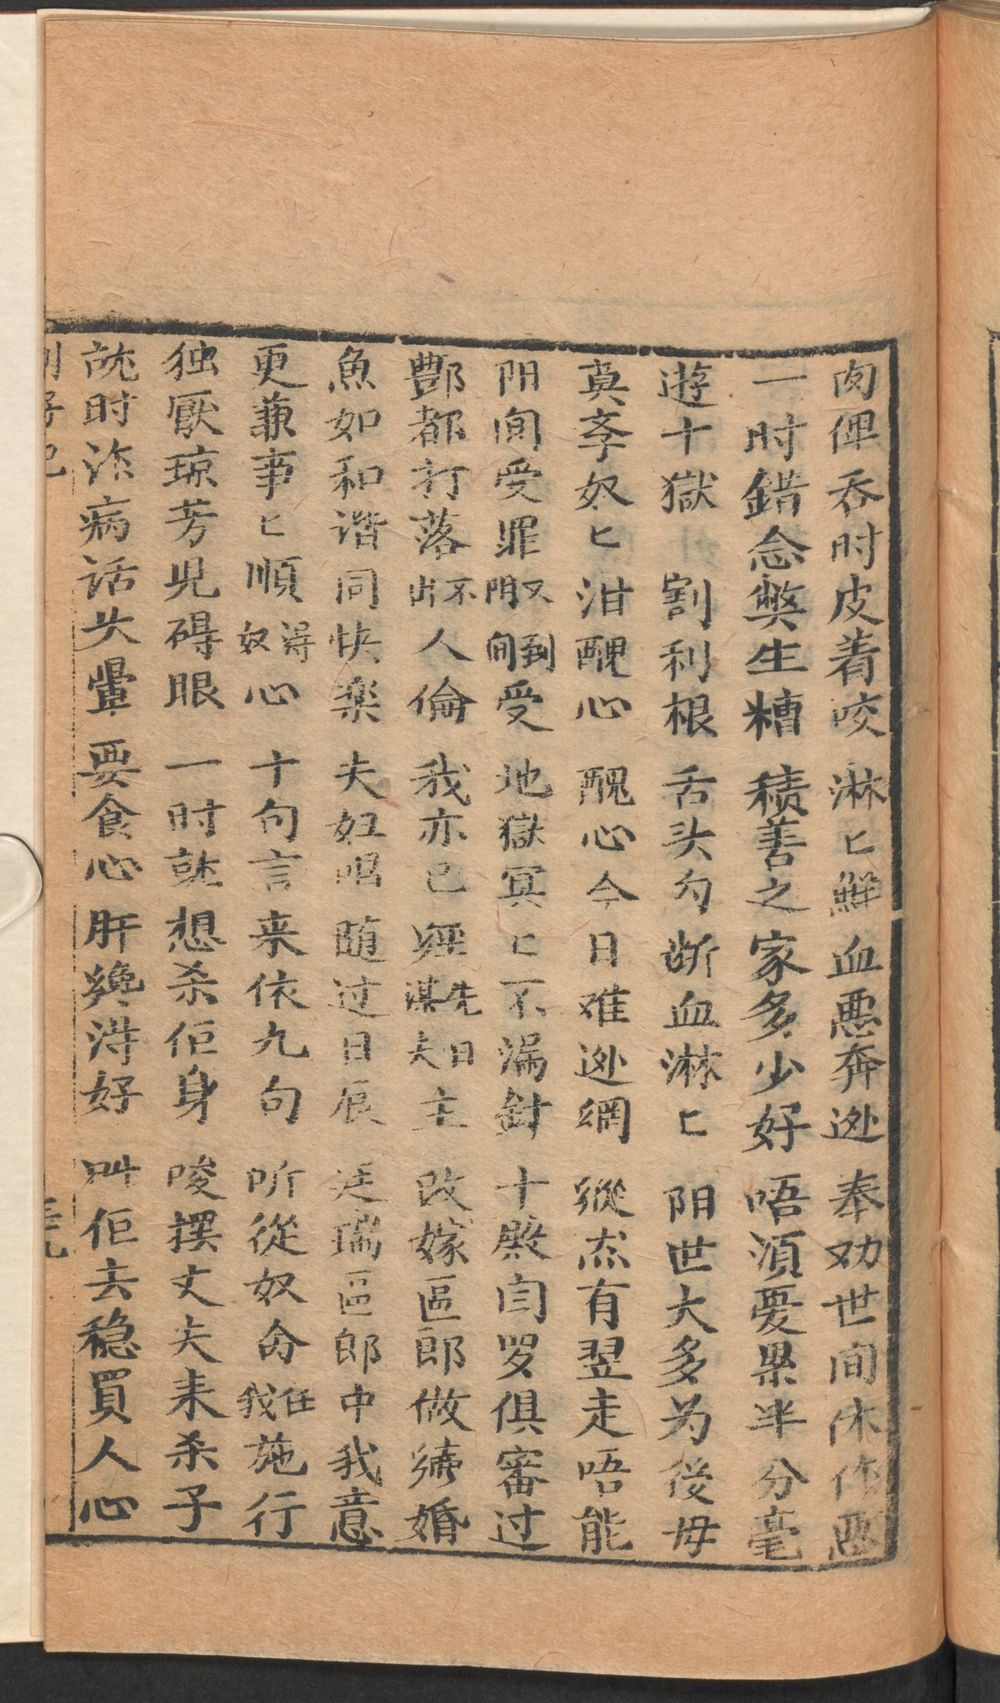 肉俾吞时皮着咬 淋匕鮮血悪奔逊 奉劝世间休作悪
一时錯念獘生糟 積善之家多少好 唔湏憂累半分毫
遊十獄 割利根 舌头勾断血淋匕 阳世大多为後母
真孝奴匕泔醜心 醜心今日难逊網 縱然有翌走唔能
阴间受罪又到阴间受 地獄冥匕不漏針 十殿闫罗俱審过
酆都打落不出人倫 我亦已經先日謀夫主 改嫁區郎做续婚
魚如和谐同快楽 夫妇唱随过日辰 廷瑞區郎中我意
更兼事匕順得奴心 十句言来依九句 听從奴命任我施行
独厭琼芳児碍眼 一时就想杀佢身 唆摆丈夫来杀子
詭时诈病话头暈 要食心肝纔淂好 叫佢去稳買人心